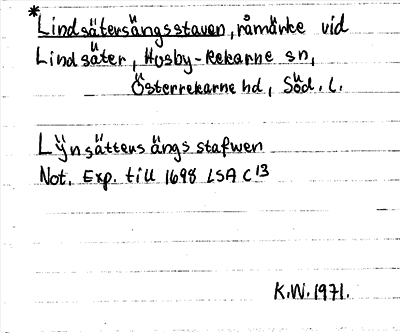 *Lindsätersängsstaven, råmärke vid
Lindsäter, Husby-Rekarne sn,
Österrekarne hd, Söd. l.
Lÿnsättens ängs stafwen
Not. Exp. till 1698 LSA C 13
K.W. 1971.